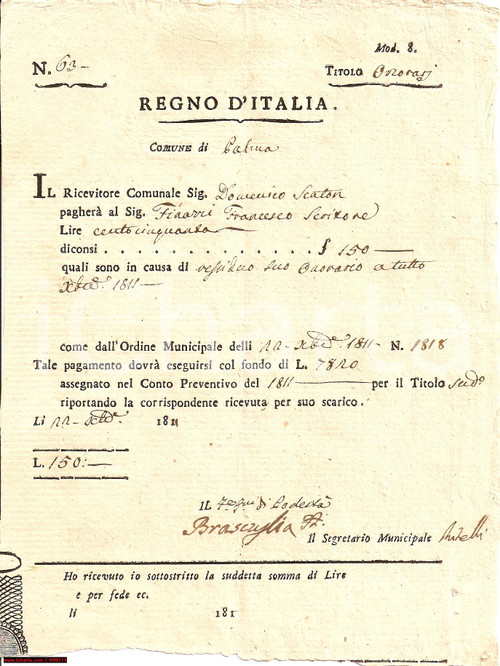 Mod. 8.
N. 63 - TITOLO Onorarj
REGNO D'ITALIA.
COMUNE di Palma
IL Ricevitore Comunale Sig. Domenico
pagherà al Sig. Francesco Scrittore
Lire centocinquanta
diconsi . . . . . . . . . . . . . . . § 150 —
quali sono in causa di residuo suo Onorario a tutto
Xbre 1811 —
come dall'Ordine Municipale delli 22 Xbre 1811 - N. 1818
Tale pagamento dovrà eseguirsi col fondo di L. 7820
assegnato nel Conto Preventivo del 1811 — per il Titolo sudo
riportando la corrispondente ricevuta per suo scarico.
Li 22 Xbre 1811
L. 150:—
IL di Podestà
Il Segretario Municipale
Ho ricevuto io sottostritto la suddetta somma di Lire
e per fede ec.
li 181